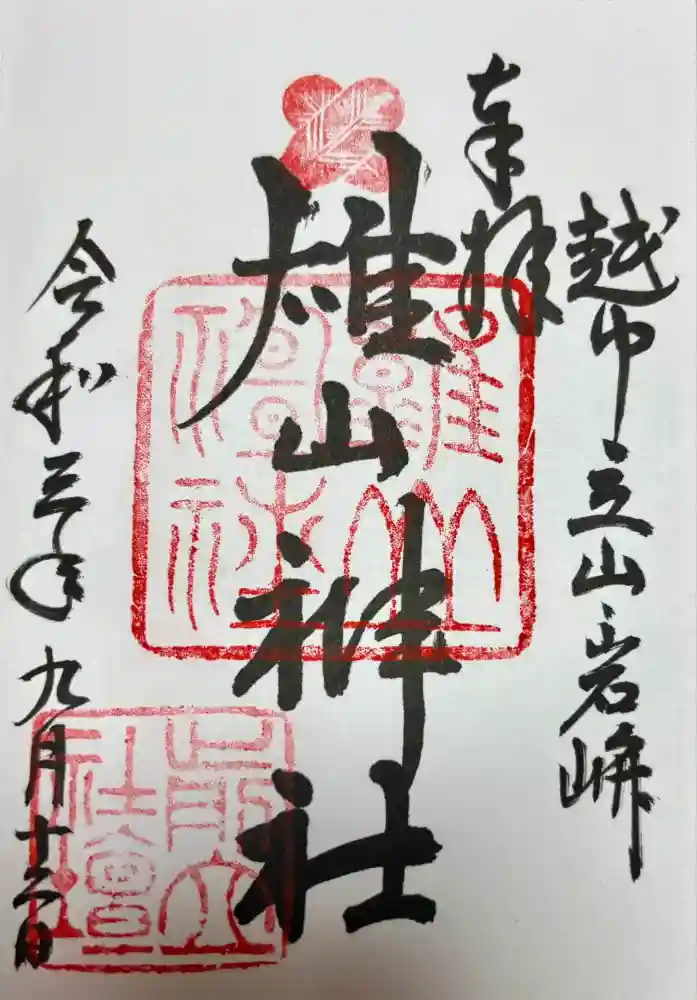 越中立山岩峅
奉拝
雄山神社
令和三年九月十二日
前立社壇